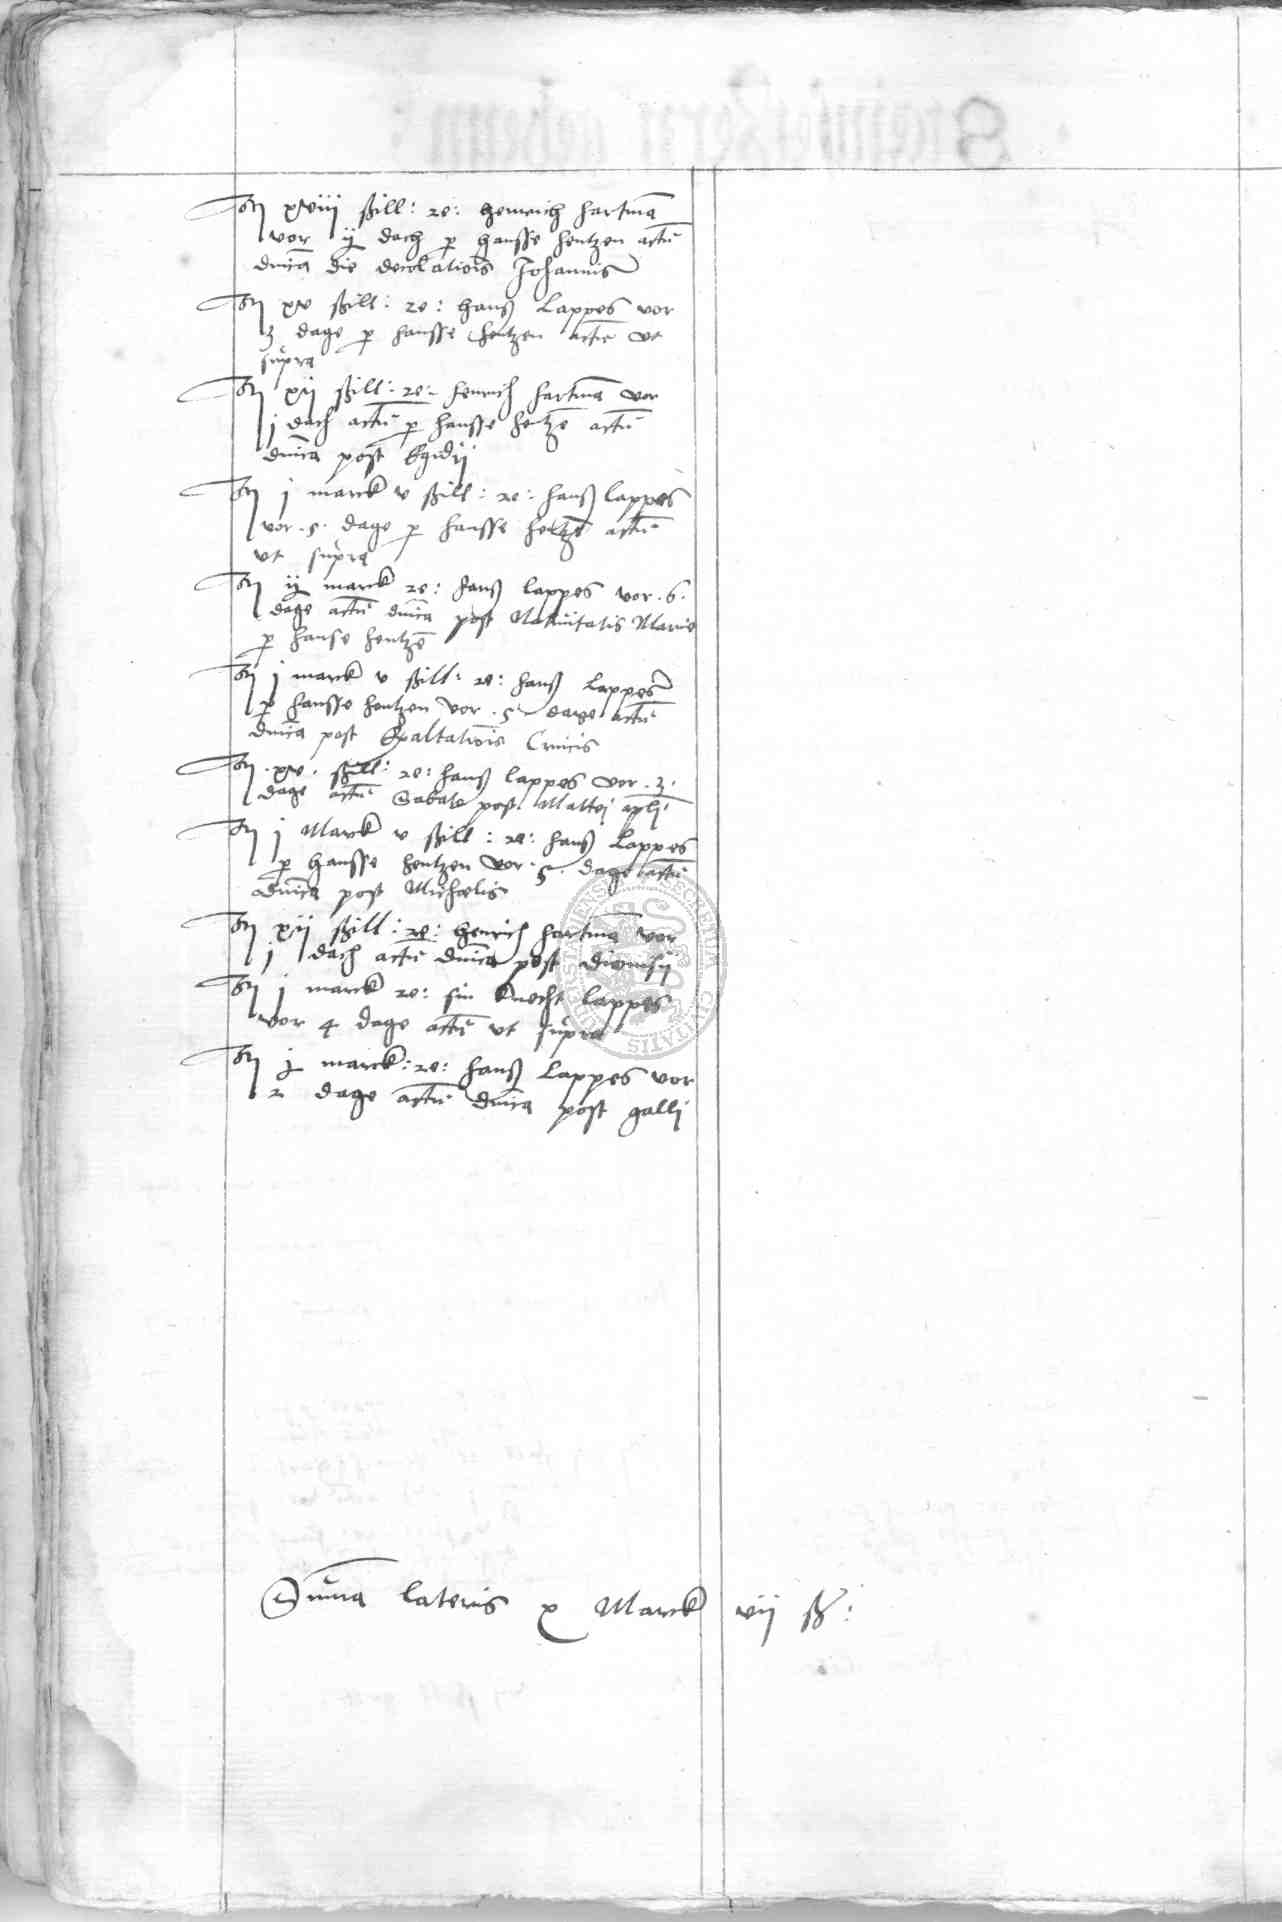 Itm xviij ßill: re: heinrich hartma̅
vor ij dach p hansse hentzen actu̅
dnica̅ die decolatiois Johannis
Itm xv ßill: re: hanß lappes vor
3 dage p hansse hentzen actu̅ vt
supra
Itm xij ßill: re: henrich hartma̅ vor
j dach actu̅ p hansse hentze̅ actu̅
dnica̅ post Egidij
Itm j marck v ßill: re: hanß lappes
vor .5. dage p hansse hentze̅ actu̅
vt supra
Itm ij marck re: hanß lappes vor .6.
dage actu̅ dnica̅ post Natiuitatis Marie
p hanse hentze̅
Itm j marck v ßill: re: hanß lappes
p hansse hentzen vor .5. dage actu̅
dnica̅ post Exaltatiois Crucis
Itm .xv. ßill: re: hanß lappes vor .3.
dage actu̅ Sabato post Mattei apli
Itm j Marck v ßill: re: hanß lappes
p hansse hentzen vor .5. dage actu̅
dnica̅ post Michaelis
Itm xij ßill: re: henrich hartma̅ vor
j dach actu̅ dnica̅ post dionisij
Itm j marck re: sin knecht lappes
vor 4 dage actu̅ vt supra
Itm j marck: re: hanß lappes vor
2 dage actu̅ dnica̅ post galli
Su̅ma lateris x Marck vij ß:
SECRETUM CIVITATIS